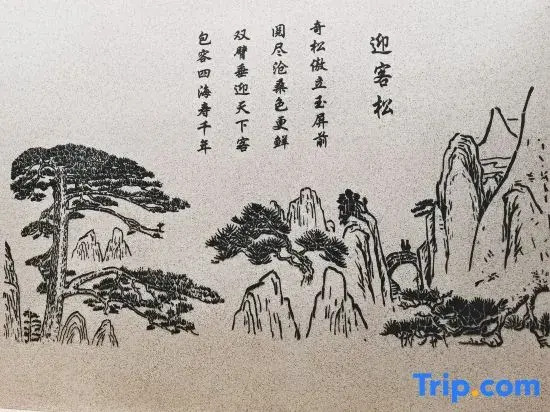 迎客松
奇松傲立玉屏前
阅尽沧桑色更鲜
双臂垂迎天下客
包容四海寿千年
Trip.com